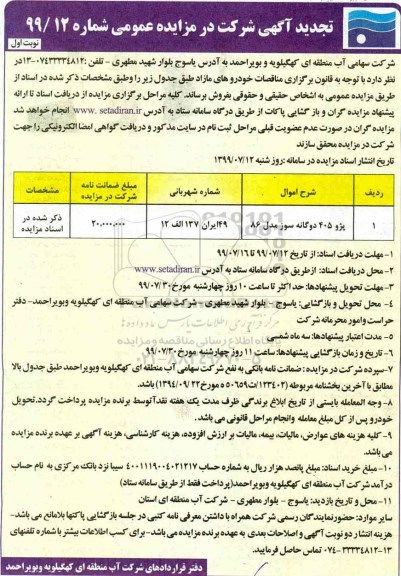 تجدید آگهی شرکت در مزایده عمومی شماره ۹۹/۱۲
نوبت اول
شرکت سهامی آب منطقه ای کهگیلویه و بویراحمد به آدرس یاسوج بلوار شهید مطهری - تلفن :۰۷۴۳۳۳۳۴۸۱۴-۱۳در
نظر دارد با توجه به قانون برگزاری مناقصات خودرو های مازاد طبق جدول زیر را وطبق مشخصات ذکر شده در اسناد از
طریق مزایده عمومی به اشخاص حقیقی و حقوقی بفروش برساند. کلیه مراحل برگزاری مزایده از دریافت اسناد تا ارائه
پیشنهاد مزایده گران و باز گشایی پاکات از طریق درگاه سامانه ستاد به آدرس www.setadiran.ir انجام خواهد شد
مزایده گران در صورت عدم عضویت قبلی مراحل ثبت نام در سایت مذکور و دریافت گواهی امضا الکترونیکی را جهت
شرکت در مزایده محقق سازند
تاریخ انتشار اسناد مزایده در سامانه :روز شنبه ۱۳۹۹/۰۷/۱۲
ردیف شرح اموال شماره شهربانی مبلغ ضمانت نامه شرکت در مزایده مشخصات
۱ پژو ۴۰۵ دوگانه سوز مدل ۸۶ ۴۹ایران ۱۳۷ الف ۱۲ ۲۰,۰۰۰,۰۰۰ ذکر شده در اسناد مزایده
۱- مهلت دریافت اسناد: از تاریخ ۹۹/۰۷/۱۲ تا ۹۹/۰۷/۱۶
۲- محل دریافت اسناد: ازطریق درگاه سامانه ستاد به آدرس www.setadiran.ir
۳- مهلت تحویل پیشنهادها: حداکثر تا ساعت ۱۰ روز چهارشنبه مورخ۹۹/۰۷/۳۰
۴- محل تحویل و بازگشایی: یاسوج - بلوار شهید مطهری - شرکت سهامی آب منطقه ای کهگیلویه وبویراحمد- دفتر
حراست وامور محرمانه شرکت
۵- مدت اعتبار پیشنهادها: سه ماه شمسی
۶- تاریخ و زمان بازگشایی پیشنهادها: ساعت ۱۱ روز چهارشنبه مورخ۹۹/۰۷/۳۰
۷-سپرده شرکت در مزایده : ضمانت نامه بانکی به نفع شرکت سهامی آب منطقه ای کهگیلویه وبویراحمد طبق جدول بالا
مطابق با آخرین بخشنامه مربوطه (۱۲۳۴۰۲/ت۵۰۶۵۹ه مورخ۱۳۹۴/۰۹/۲۲) باشد.
۸- وجه المعامله بایستی از تاریخ ابلاغ برندگی ظرف مدت یک هفته نقدآتوسط برنده مزایده پرداخت گردد.تحویل
خودرو پس از کل مبلغ معامله وانجام مراحل قانونی می باشد.
۹- کلیه هزینه های عوارض، مالیات، بیمه، مالیات بر ارزش افزوده، هزینه کارشناسی، هزینه آگهی بر عهده برنده مزایده
می باشد.
۱۰- مبلغ خرید اسناد: مبلغ پانصد هزار ریال به شماره حساب ۴۰۰۱۱۱۹۰۰۴۰۲۱۲۱۷ سیبا نزد بانک مرکزی به نام حساب
درآمد شرکت آب منطقه ای کهگیلویه وبویراحمد(پرداخت فقط از طریق سامانه ستاد)
۱۱- محل و تاریخ بازدید: یاسوج - بلوار مطهری - شرکت آب منطقه ای استان
سایر موارد: حضورنمایندگان رسمی شرکت همراه با داشتن معرفی نامه کتبی در جلسه بازگشایی پاکتها بلامانع می باشد-
هزینه انتشار دو نوبت آگهی و اصلاحات بعدی به عهده برنده مزایده می باشد- برای کسب اطلاعات بیشتر با شماره تلفنهای
۱۳-۳۳۳۳۴۸۱۲-۰۷۴ تماس حاصل فرمایید.
دفتر قراردادهای شرکت آب منطقه ای کهگیلویه وبویراحمد